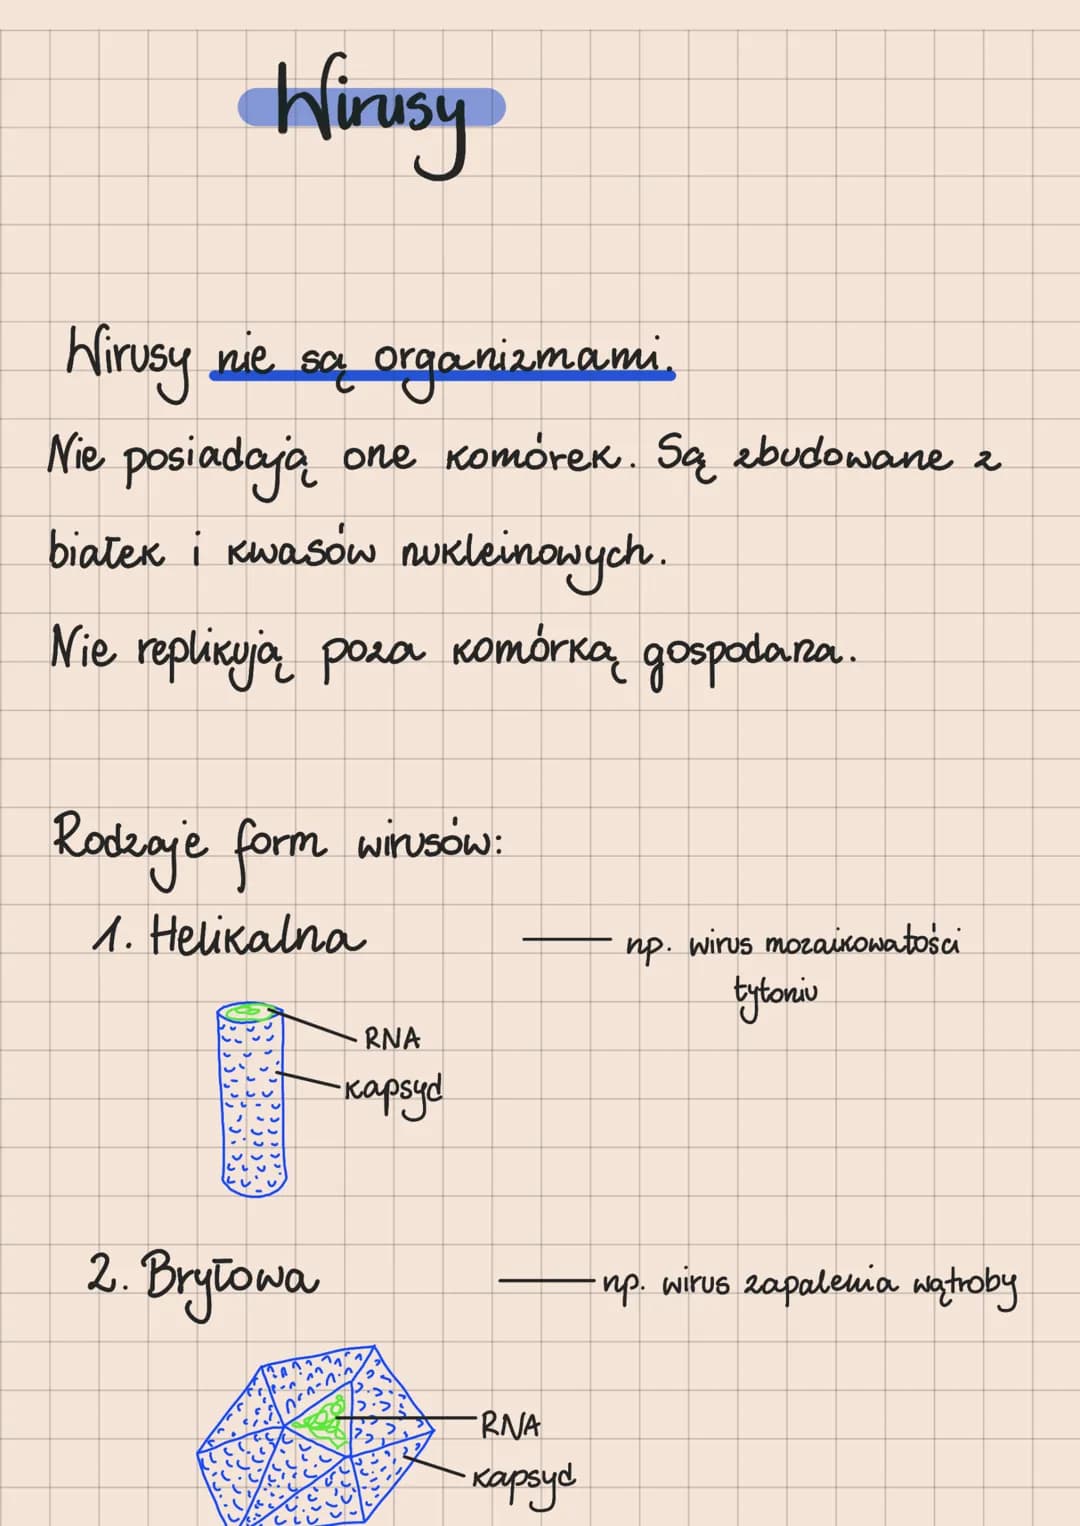 Wirusy
Wirusy nie są organizmami.
Nie posiadają one komórek. Są zbudowane z
białek i kwasów nukleinowych.
Nie replikują poza komórką gospodarza.
Rodzaje form wirusów:
1. Helikalna — np. wirus mozaikowatości
tytoniu
RNA
kapsyd
2. Bryłowa — np. wirus zapalenia wątroby
RNA
kapsyd